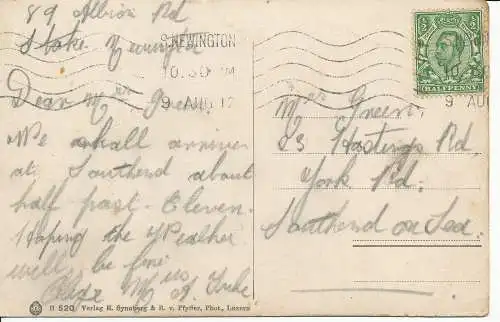 89 Albion Rd
Stoke Newington
S.NEWINGTON
10.30 PM
9 AUG 12
HALFPENNY
9 AUG
Dear Mrs Green
We shall arrive
at Southend about
half past Eleven.
Hoping the Weather
will be fine
Mrs
Mrs Green.
83 Hastings Rd.
York Rd.
Southend on Sea.
H 520 Verlag E. Synnberg & R. v. Pfyffer, Phot., Luzern